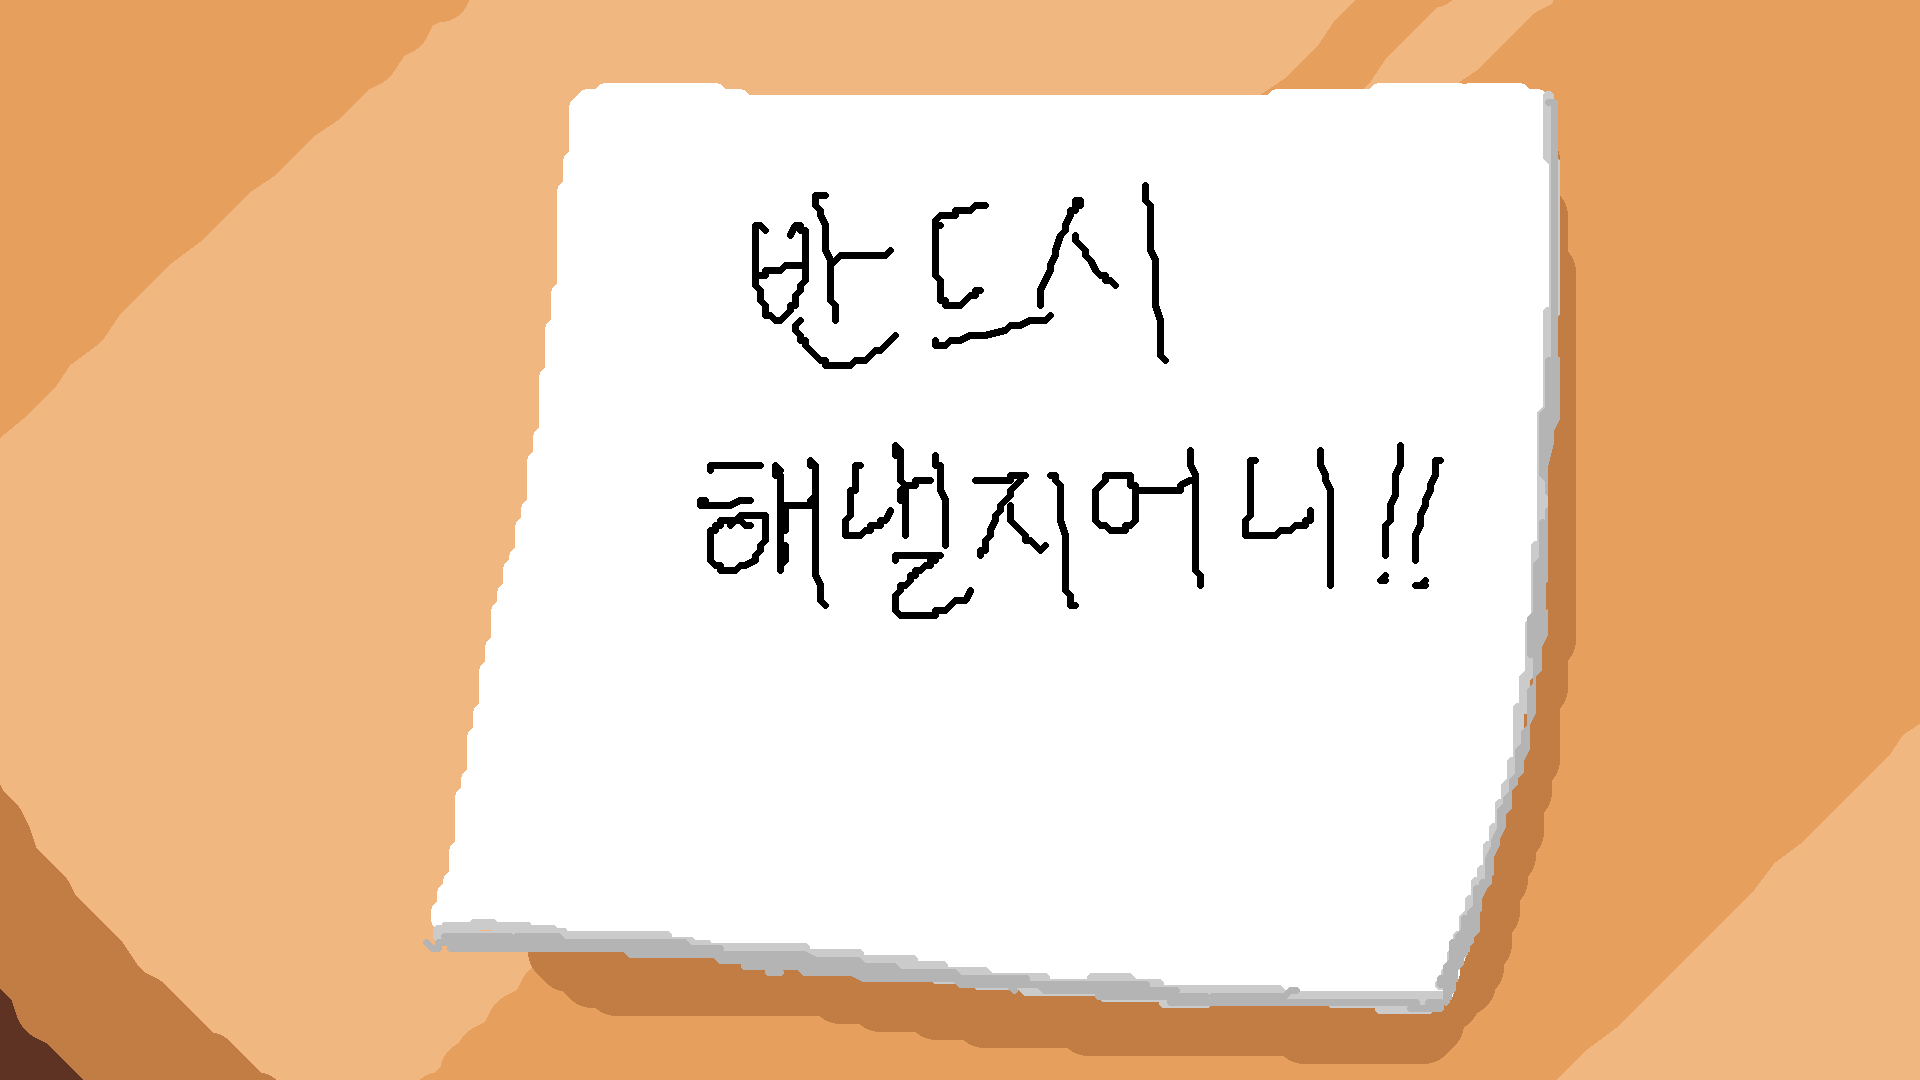 반드시
해낼지어니!!